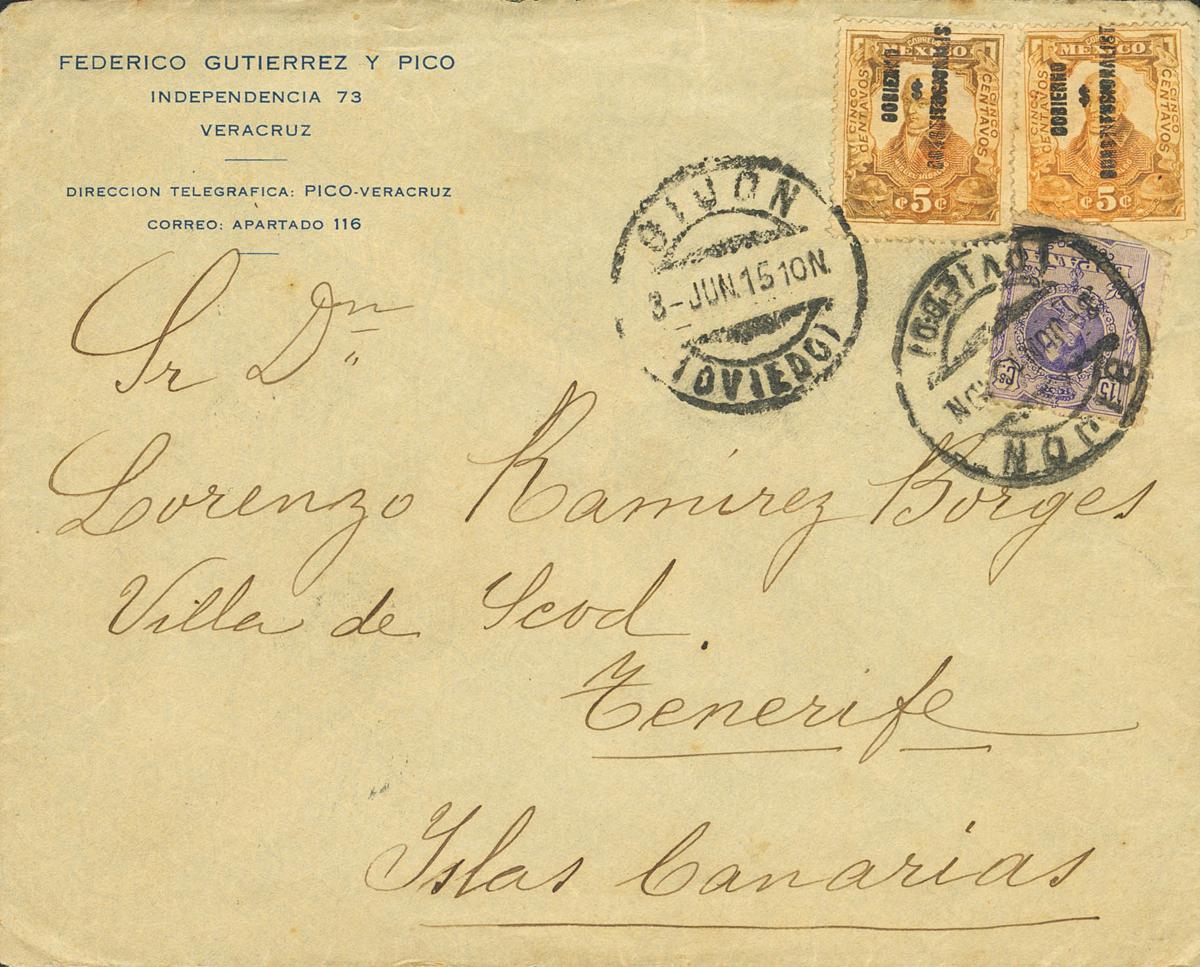 FEDERICO GUTIERREZ Y PICO
INDEPENDENCIA 73
VERACRUZ
DIRECCION TELEGRAFICA: PICO-VERACRUZ
CORREO: APARTADO 116
CORREOS
MEXICO
CINCO CENTAVOS
CINCO CENTAVOS
MIGUEL HIDALGO
¢5¢
GOBIERNO
$
CONSTITUCIONALIS
CORREOS
MEXICO
CINCO CENTAVOS
CINCO CENTAVOS
¢5¢
GOBIERNO
$
CONSTITUCIONALIST
GIJON
8-JUN.15 10N.
(OVIEDO)
GIJON
(OVIEDO)
15 Cs
Sr Dn
Lorenzo Ramírez Borges
Villa de Ycod.
Tenerife
Islas Canarias